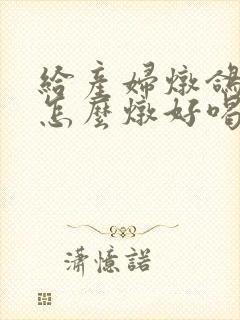 給產婦燉鴿
怎麼燉好喝
瀟憶諾